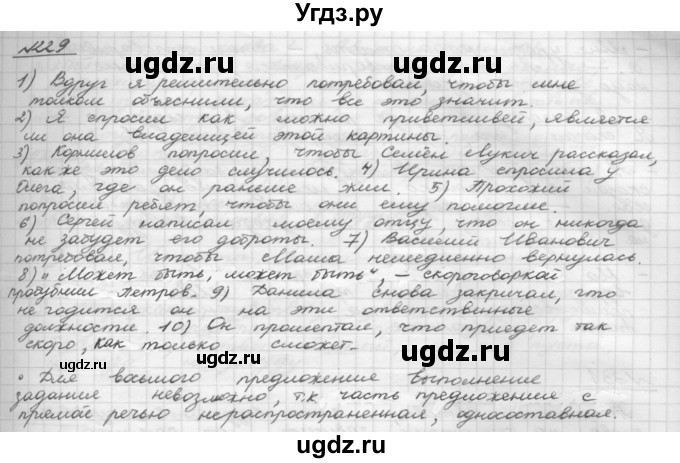 Угдз.ру
№229
ugdz.ru ugdz.ru
1) Вдруг я решительно потребовал, чтобы мне
толком объяснили, что все это значит.
2) Я спросил как можно приветливей, является
ли она владелицей этой картины.
3) Кормилов попросил, чтобы Семён Лукич рассказал,
как же это дело случилось. 4) Ирина спросила у
Олега, где он раньше жил. 5) Прохожий
попросил ребят, чтобы они ему помогли.
ugdz.ru ugdz.ru
6) Сергей написал моему отцу, что он никогда
не забудет его доброты. 7) Василий Иванович
потребовал, чтобы Маша немедленно вернулась.
8) „Может быть, может быть", – скороговоркой
пробубнил Петров. 9) Данила снова закричал, что
не годится он на эти ответственные
должности. 10) Он прошептал, что приедет так
скоро, как только сможет.
ugdz.ru ugdz.ru
• Для восьмого предложения выполнение
задания невозможно, т.к часть предложения с
прямой речью нераспространенная, односоставная.
ugdz.ru